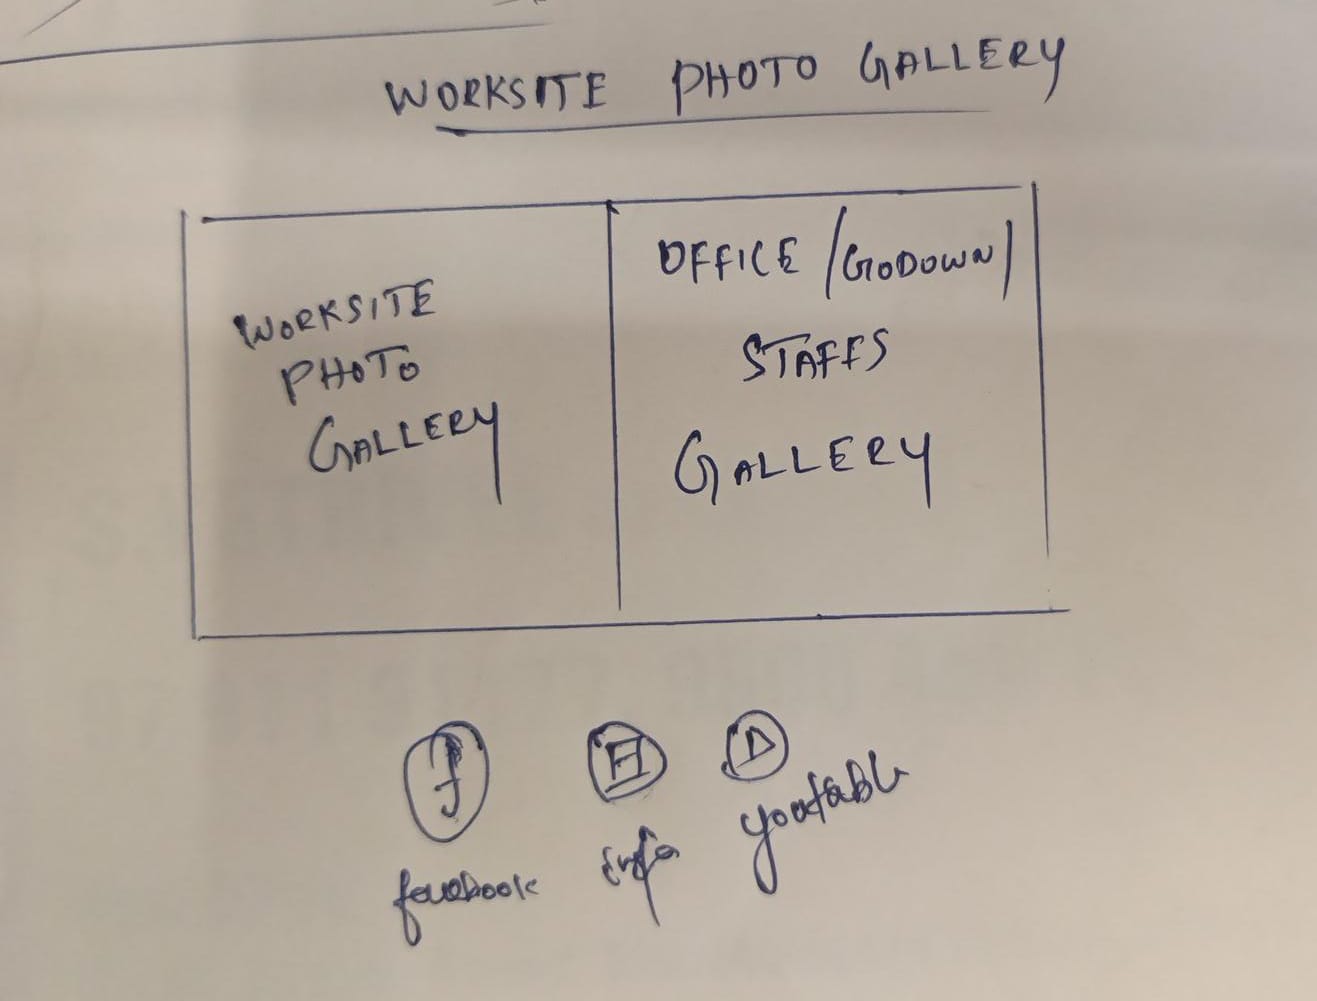 WORKSITE PHOTO GALLERY
WORKSITE
PHOTO
GALLERY
OFFICE /GODOWN/
STAFFS
GALLERY
facebook